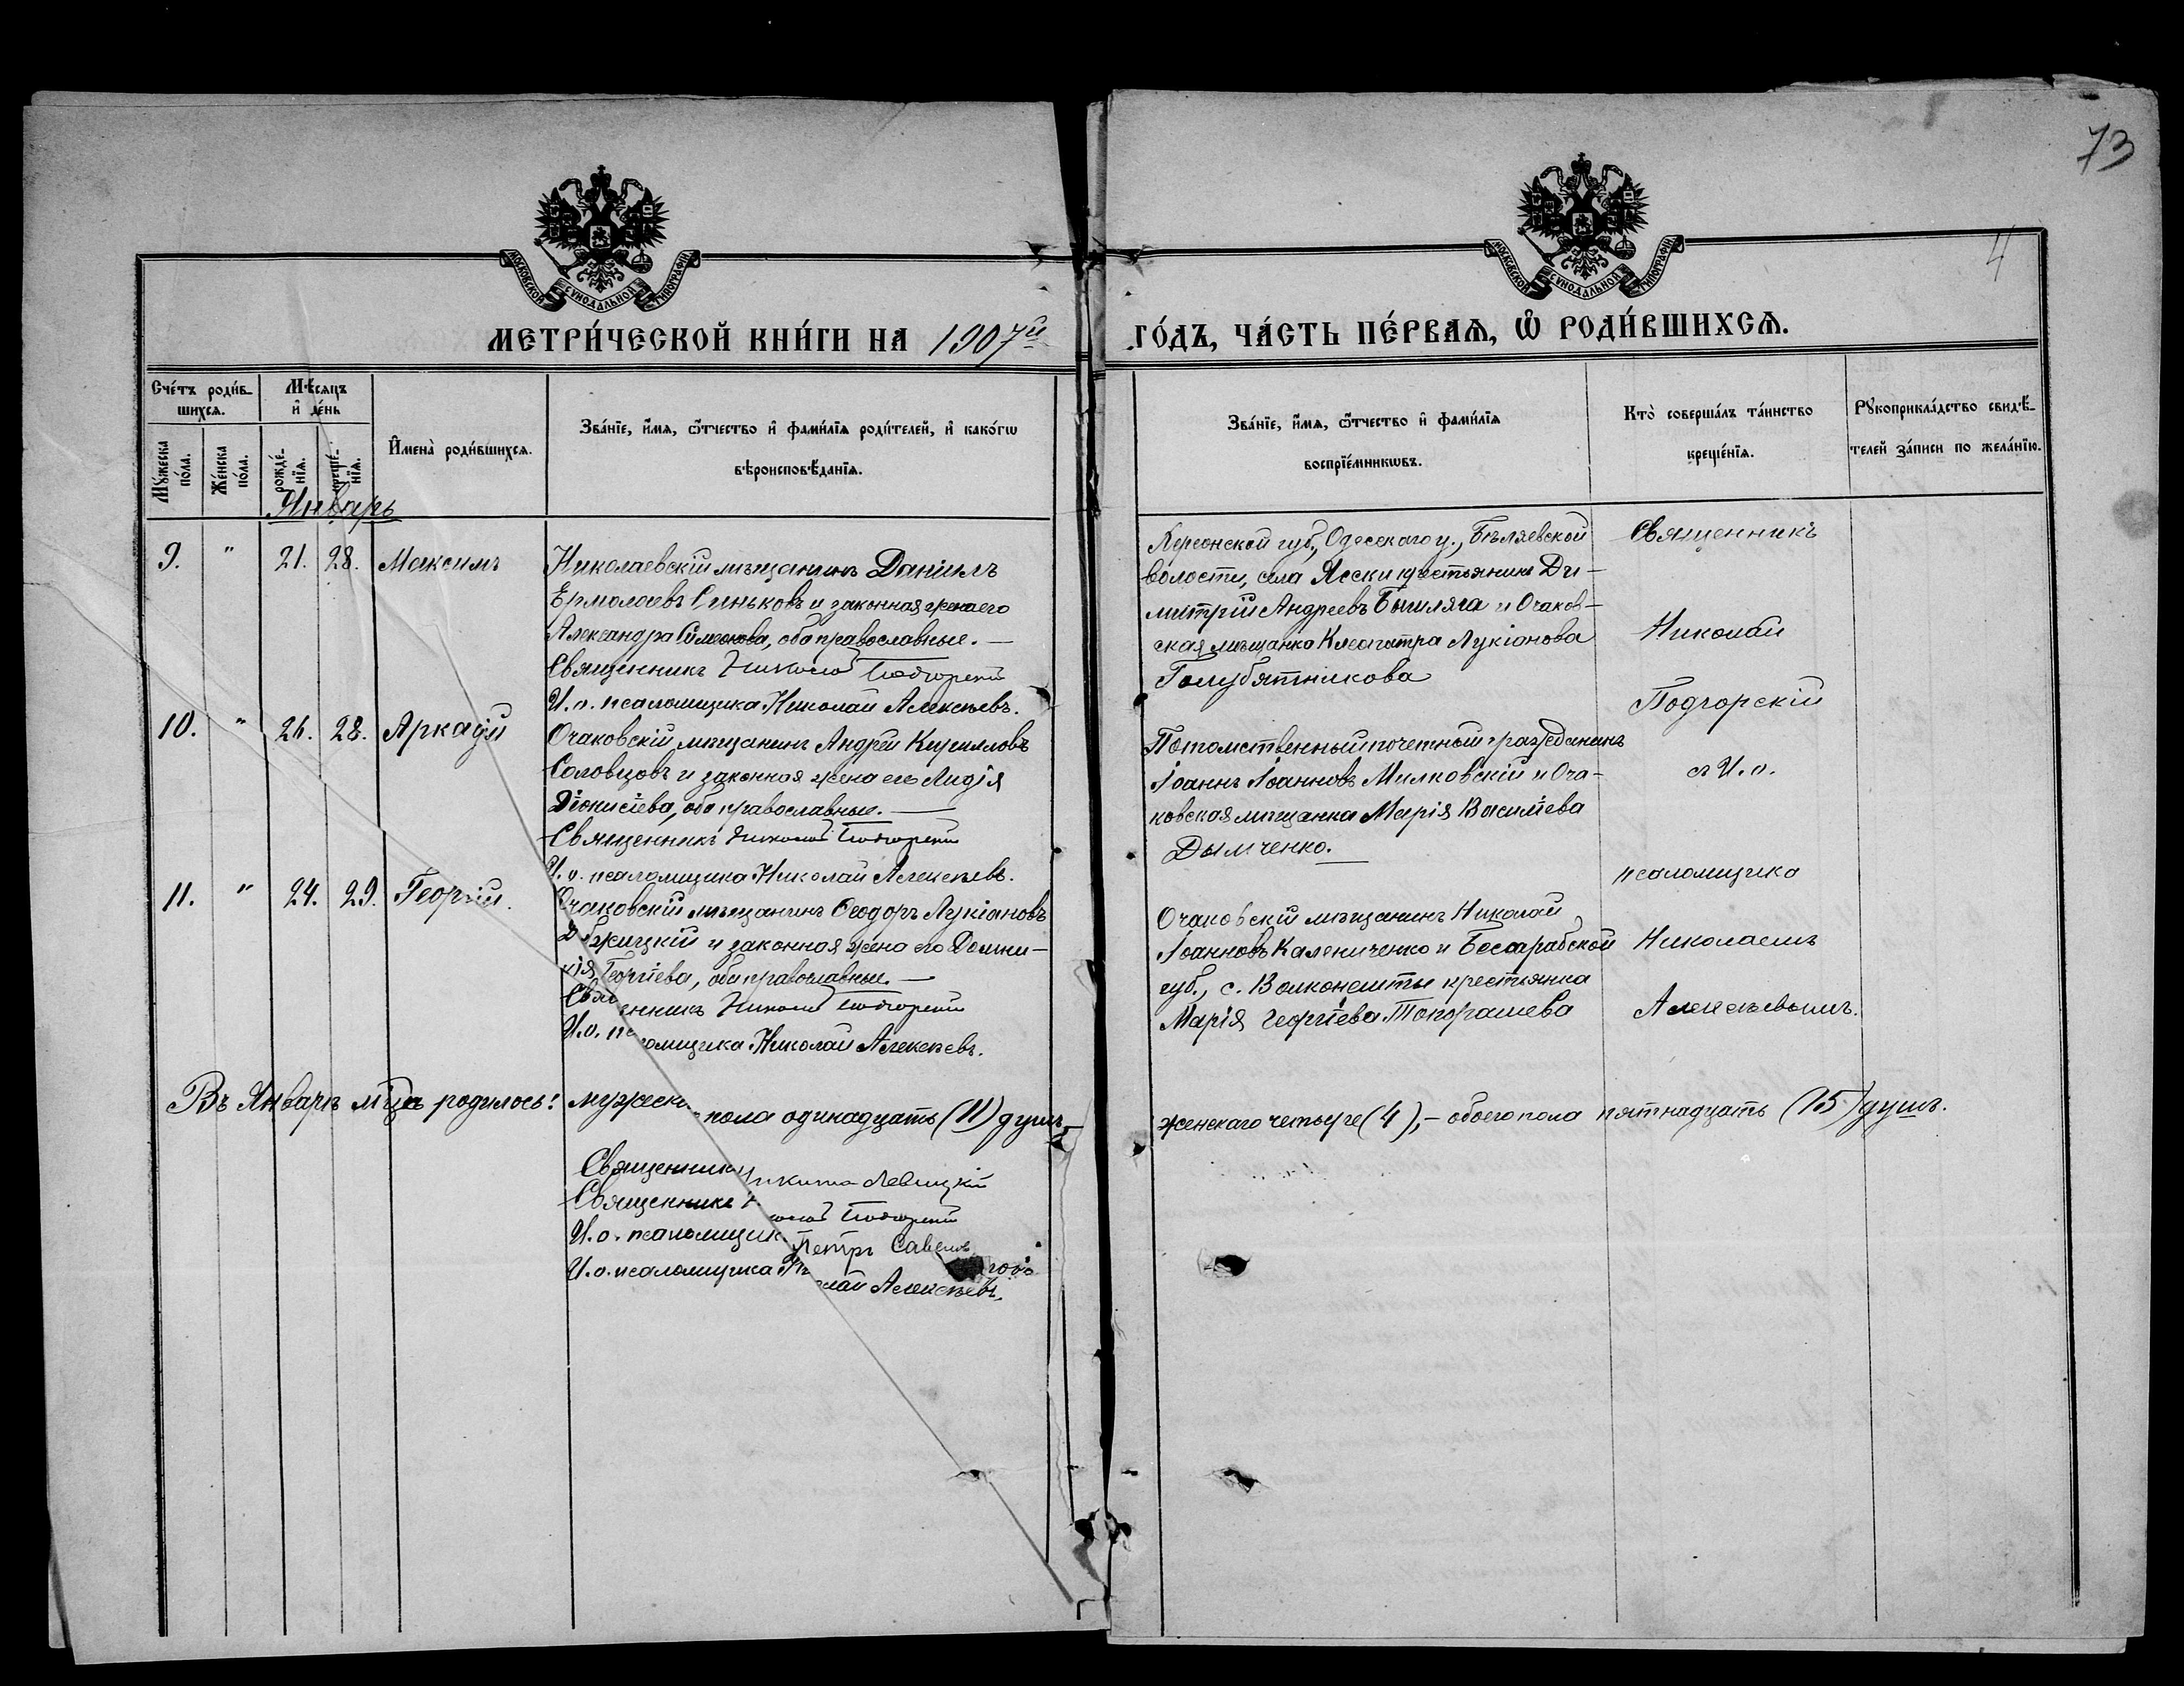 73
4
МОСКОВСКОЙ СѴНОДАЛЬНОЙ ТИПОГРАФІИ
МОСКОВСКОЙ СѴНОДАЛЬНОЙ ТИПОГРАФІИ
МЕТРИ́ЧЕСКОЙ КНИ́ГИ НА 1907й
ГО́ДЪ, ЧА́СТЬ ПЕ́РВАѦ, Ѡ҆ РОДИ́ВШИХСѦ.
Сче́тъ роди́в-
шихсѧ.
Мꙋ́жеска по́ла.
Же́нска по́ла.
Мѣ́сѧцъ
и҆ де́нь
рожде́-нїѧ.
креще́-нїѧ.
И҆мена̀ роди́вшихсѧ.
Зва́нїе, и҆́мѧ, ѻ҆́тчество и҆ фами́лїѧ роди́телей, и҆ како́гѡ
вѣроисповѣ́данїѧ.
Зва́нїе, и҆́мѧ, ѻ҆́тчество и҆ фами́лїѧ
воспрїе́мникѡвъ.
Кто̀ соверша́лъ та́инство
креще́нїѧ.
Рꙋкоприкла́дство свидѣ́-
телей за́писи по жела́нїю.
Январь
9. " 21. 28. Максимъ
Николаевскій мѣщанинъ Даніилъ
Ермолаевъ Синьковъ и законная жена его
Александра Симеонова, оба православные. —
Священникъ Николай Подгорскій
И. о. псаломщика Николай Алексѣевъ.
Херсонской губ., Одесскаго у., Бѣляевской
волости, села Яски крестьянинъ Ди-
митрій Андреевъ Бышляга и Очаков-
ская мѣщанка Клеопатра Лукіанова
Голубятникова
10. " 26. 28. Аркадій
Очаковскій мѣщанинъ Андрей Кирилловъ
Соловцовъ и законная жена его Лидія
Діонисіева, оба православные. —
Священникъ Николай Подгорскій
И. о. псаломщика Николай Алексѣевъ.
Потомственный почетный гражданинъ
Іоаннъ Іоанновъ Милковскій и Оча-
ковская мѣщанка Марія Василіева
Дымченко.
11. " 24. 29. Георгій.
Очаковскій мѣщанинъ Ѳеодоръ Лукіановъ
жицкій и законная жена его Домни-
кія Георгіева, оба православные. —
Священникъ Николай Подгорскій
И. о. псаломщика Николай Алексѣевъ.
Очаковскій мѣщанинъ Николай
Іоанновъ Калениченко и Бессарабской
губ., с. Волконешты крестьянка
Марія Георгіева Топорашева
Священникъ
Николай
Подгорскій
съ И. о.
псаломщика
Николаемъ
Алексѣевымъ.
Въ Январѣ м-цѣ родилось: мужеск пола одинадцать (11) душъ,—
женскаго четыре (4),— обоего пола пятнадцать (15) душъ.
Священник Никита Левицкій
Священникъ Николай Подгорскій
И. о. псаломщик Петръ
И. о. псаломщика Николай Алексѣевъ.